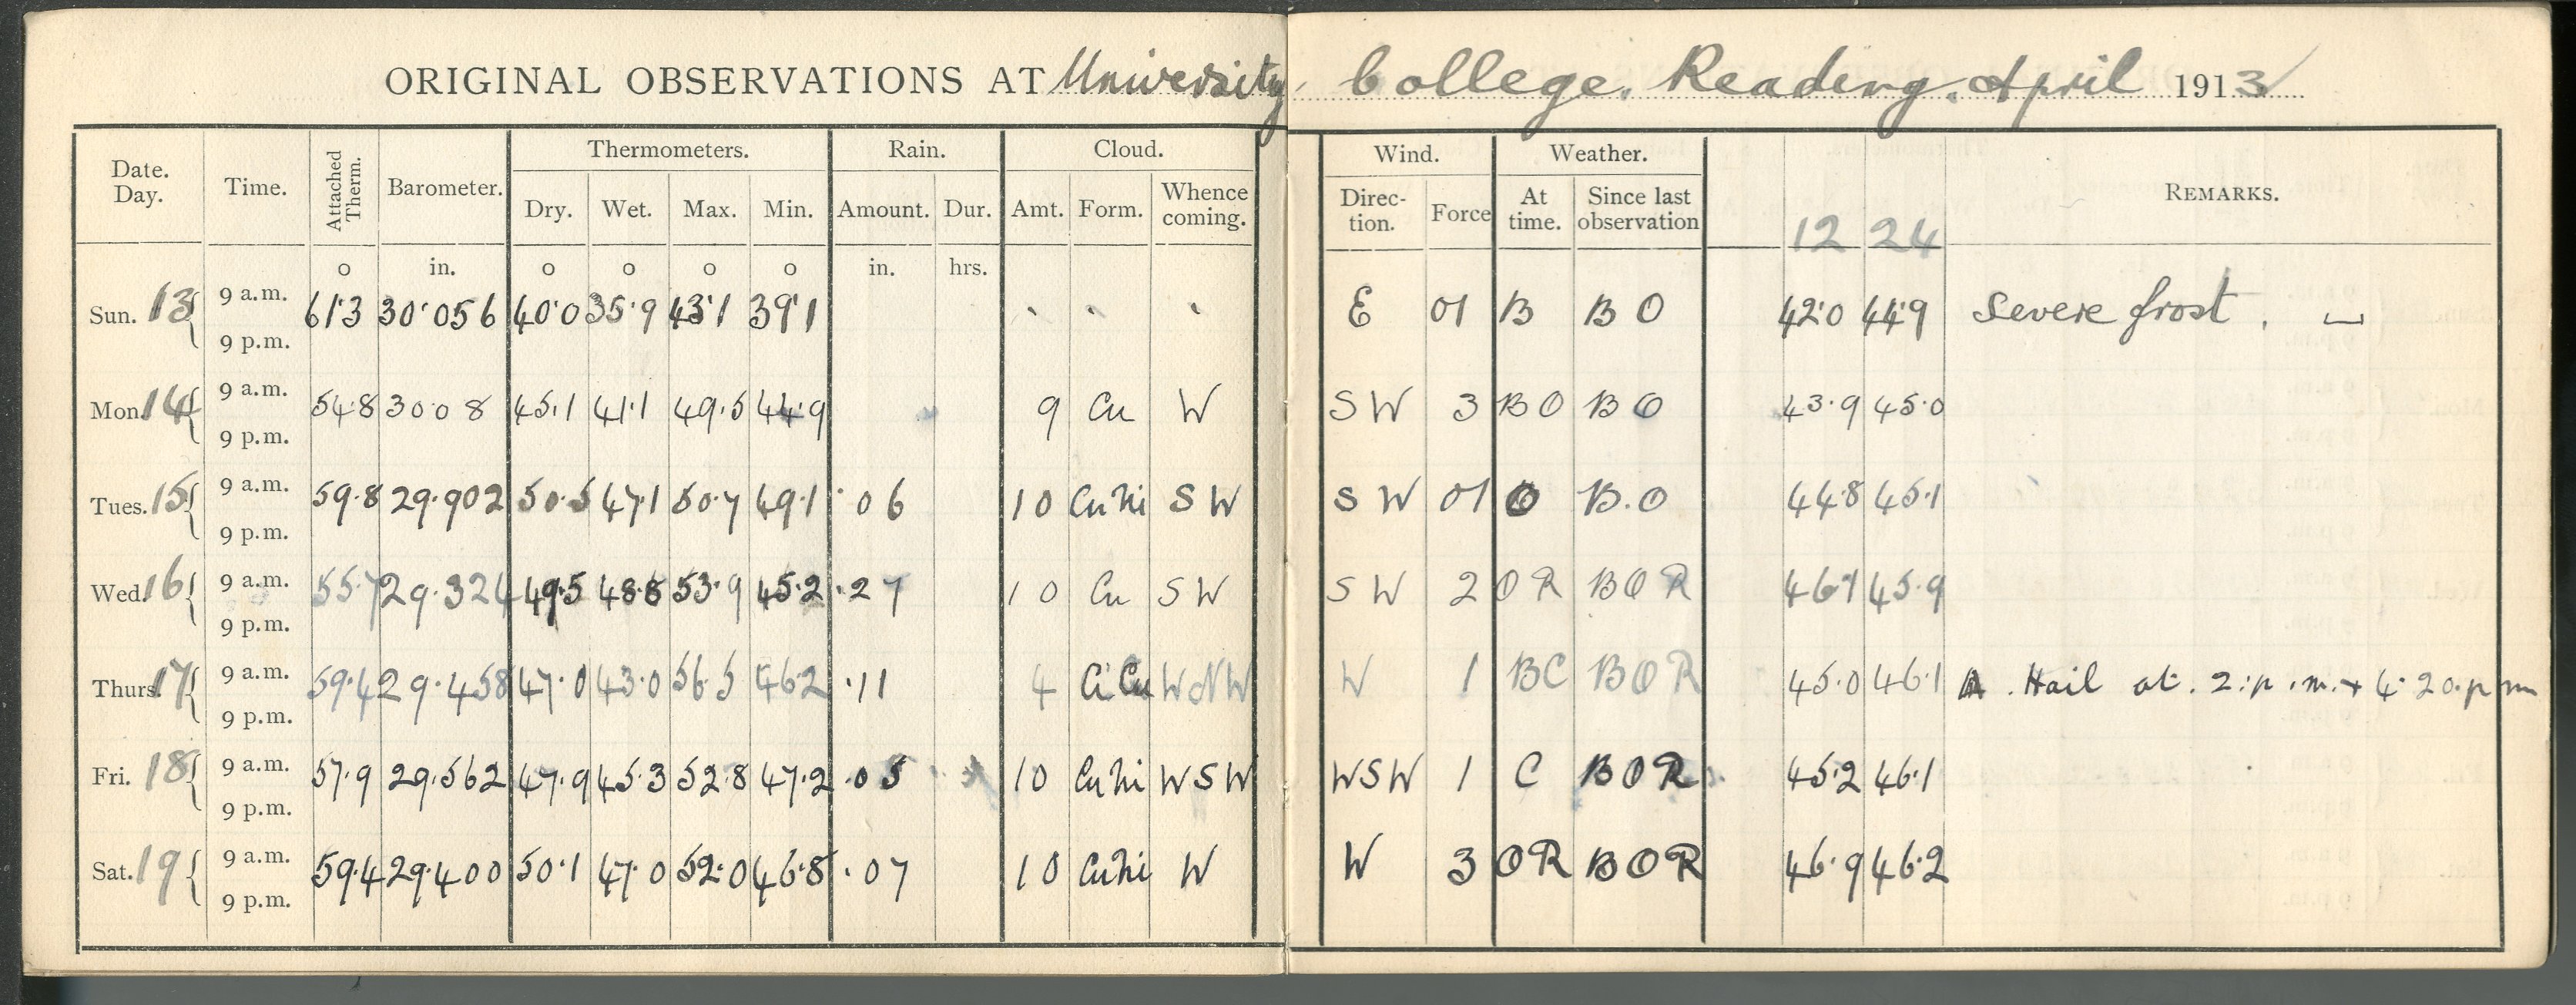 ORIGINAL OBSERVATIONS AT University College, Reading. April 1913
Date. Day. Time. Attached Therm. Barometer. Thermometers. Rain. Cloud. Wind. Weather. REMARKS.
Dry. Wet. Max. Min. Amount. Dur. Amt. Form. Whence coming. Direc- tion. Force At time. Since last observation 12 24
o in. o o o o in. hrs.
Sun. 13 9 a.m. 9 p.m. 61·3 30·056 40·0 35·9 43·1 39·1 E 01 B B O 42·0 44·9 Severe frost.
Mon. 14 9 a.m. 9 p.m. 54·8 30 0 8 45·1 41·1 49·5 44·9 9 Cu W S W 3 B O B O 43·9 45·0
Tues. 15 9 a.m. 9 p.m. 59·8 29·902 50·5 47·1 50·7 49·1 ·06 10 Cu Ni S W S W 01 O B.O 44·8 45·1
Wed. 16 9 a.m. 9 p.m. 55·7 29·324 49·5 48·8 53·9 45·2 ·27 10 Cu S W S W 2 O R B O R 46·1 45·9
Thurs. 17 9 a.m. 9 p.m. 59·4 29·458 47·0 43·0 56·5 46·2 ·11 4 Ci Cu W N W W 1 B C B O R 45·0 46·1 Hail at 2.p.m. + 4·20.p m
Fri. 18 9 a.m. 9 p.m. 57·9 29·562 47·9 45·3 52·8 47·2 ·05 10 Cu Ni W S W W S W 1 C B O R 45·2 46·1
Sat. 19 9 a.m. 9 p.m. 59·4 29·400 50·1 47·0 52·0 46·8 ·07 10 Cu Ni W W 3 O R B O R 46·9 46·2